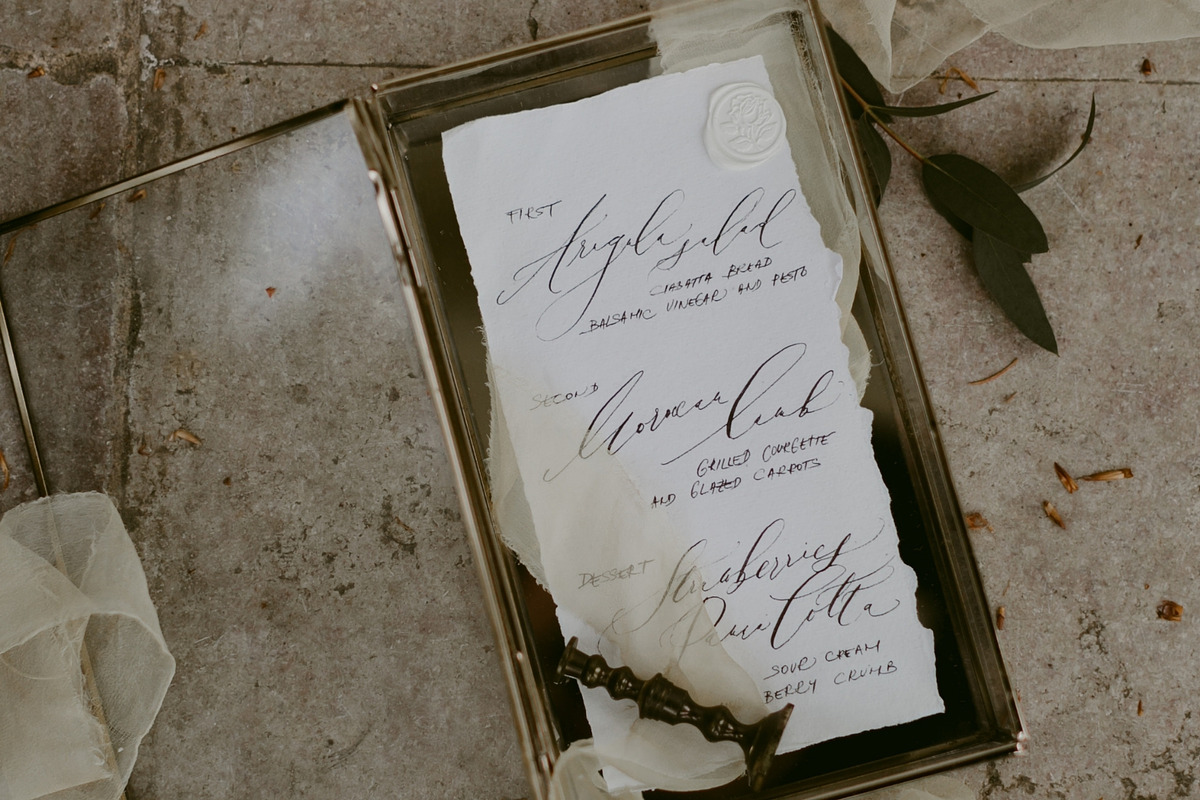 FIRST
Arugula salad
CIABATTA BREAD
BALSAMIC VINEGAR AND PESTO
SECOND
Moroccan lamb
GRILLED COURGETTE
AND GLAZED CARROTS
DESSERT
Strawberries
Panna Cotta
SOUR CREAM
BERRY CRUMB